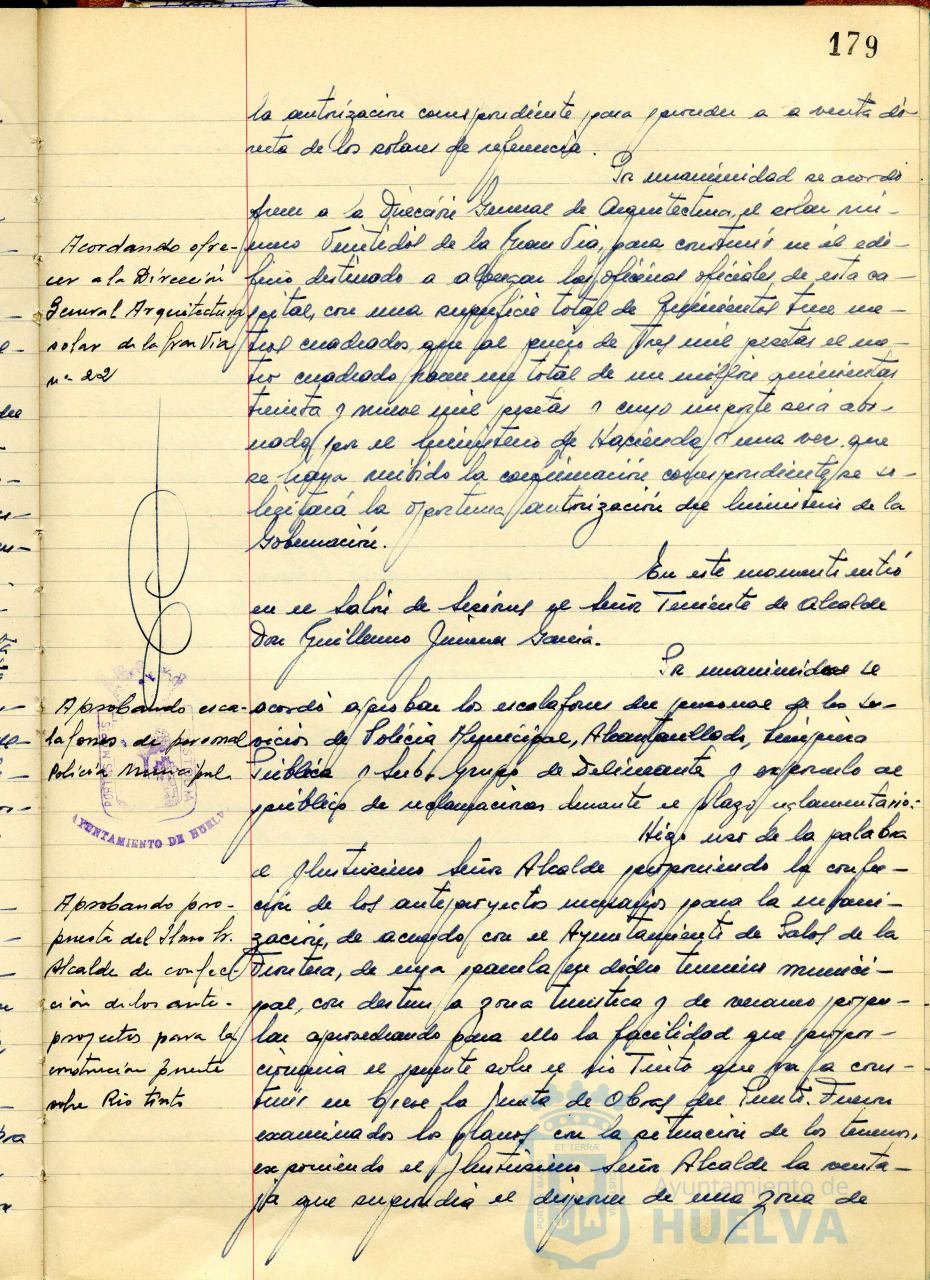 179
la autorización correspondiente para proceder a a venta di-
recta de los solares de referencia.
Por unanimidad se acordó
Acordando ofre-
cer a la Dirección
General Arquitectura
solar de la Gran Via
nº 22
ofrecer a la Dirección General de Arquitectura, el solar nú-
mero Veintidós de la Gran Via, para construir en él edi-
ficio destinado a albergar las oficinas oficiales de esta ca-
pital, con una superficie total de Quinientos trece me-
tros cuadrados, que al precio de Tres mil pesetas el me-
tro cuadrado hacen un total de un millón quinientas
treinta y nueve mil pesetas y cuyo importe será abo-
nado por el Ministerio de Hacienda y una vez que
se haya recibido la confirmación correspondiente, se so-
licitará la oportuna autorización del Ministerio de la
Gobernación.
En este momento entró
en el Salón de Sesiones el Señor Teniente de Alcalde
Don Guillermo Jimenez García.
Por unanimidad se
Aprobando esca-
lafones de personal
Policía Municipal
acordó aprobar los escalafones del personal de los Ser-
vicios de Policía Municipal, Alcantarillado, Limpieza
Pública y Sub-grupo de Delineante y exponerlo al
público de reclamaciones durante el plazo reglamentario.
AYUNTAMIENTO DE HUELVA
Hizo uso de la palabra
Aprobando pro-
puesta del Ilmo Sr.
Alcalde de confec-
ción de los ante-
proyectos para la
construcion puente
sobre Rio tinto
el Ilustrísimo Señor Alcalde proponiendo la confec-
ción de los anteproyectos necesarios para la urbani-
zación, de acuerdo con el Ayuntamiento de Palos de la
Frontera, de una parcela en dicho término munici-
pal, con destino a zona turística y de verano popu-
lar aprovechando para ello la facilidad que propor-
cionaria el puente sobre el rio Tinto que va a cons-
truir en breve la Junta de Obras del Puerto. Fueron
examinados los planos con la situación de los terrenos,
exponiendo el Ilustrísimo Señor Alcalde la venta-
ja que supondría el disponer de una zona de
Ayuntamiento de
HUELVA